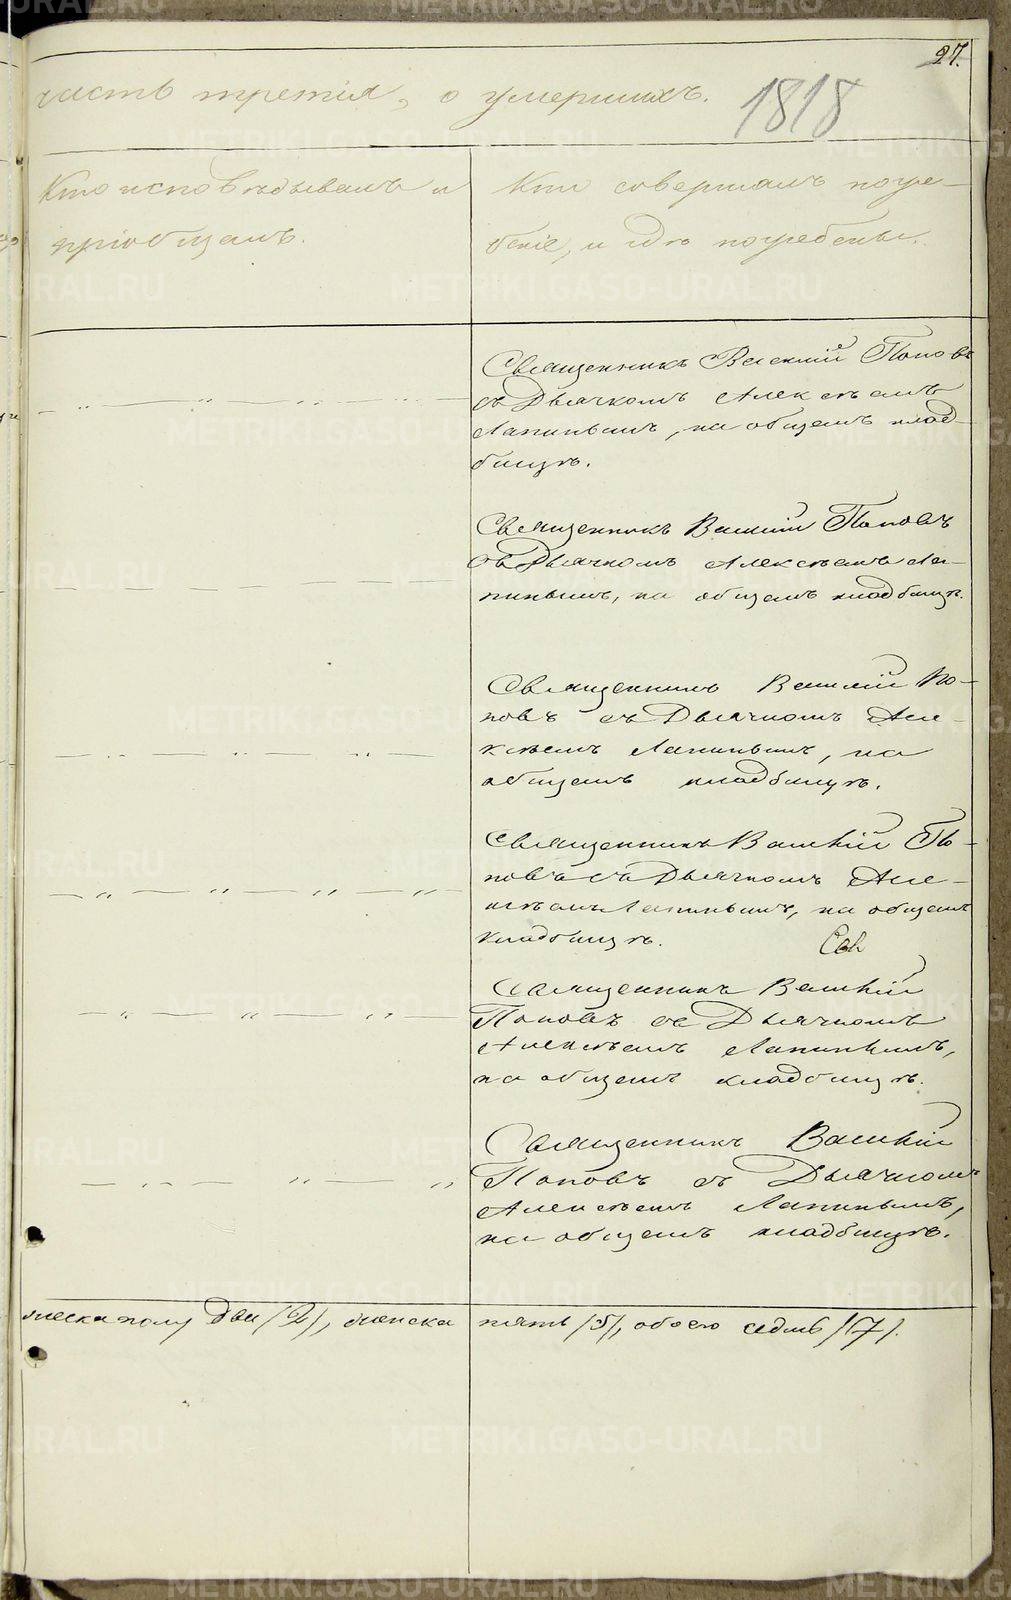 27.
часть третія, о умершихъ.
1818
Кто исповѣдывалъ и
пріобщалъ.
Кто совершалъ погре-
беніе, и гдѣ погребены.
Священникъ Василій Поповъ
съ Дьячкомъ Алексѣемъ
Лапинымъ, на общемъ клад-
бищѣ.
Священникъ Василій Поповъ
съ Дьячкомъ Алексѣемъ Ла-
пинымъ, на общемъ кладбищѣ.
Священникъ Василій По-
повъ съ Дьячкомъ Але-
ксѣемъ Лапинымъ, на
общемъ кладбищѣ.
Священникъ Василій По-
повъ съ Дьячкомъ Але-
ксѣемъ Лапинымъ, на общемъ
кладбищѣ.
Свя
Священникъ Василій
Поповъ съ Дьячкомъ
Алексѣемъ Лапинымъ,
на общемъ кладбищѣ.
Священникъ Василій
Поповъ съ Дьячкомъ
Алексѣемъ Лапинымъ,
на общемъ кладбищѣ.
полу два /2/, женска пять /5/, обоего седмь /7/.
METRIKI.GASO-URAL.RU